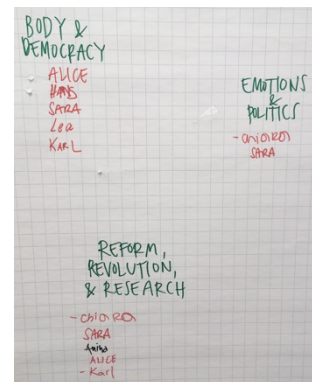 BODY &
DEMOCRACY
ALICE
SARA
Lea
KARL
EMOTIONS
&
POLITICS
- chiara
SARA
REFORM,
REVOLUTION,
& RESEARCH
- chiara
SARA
ALICE
- Karl